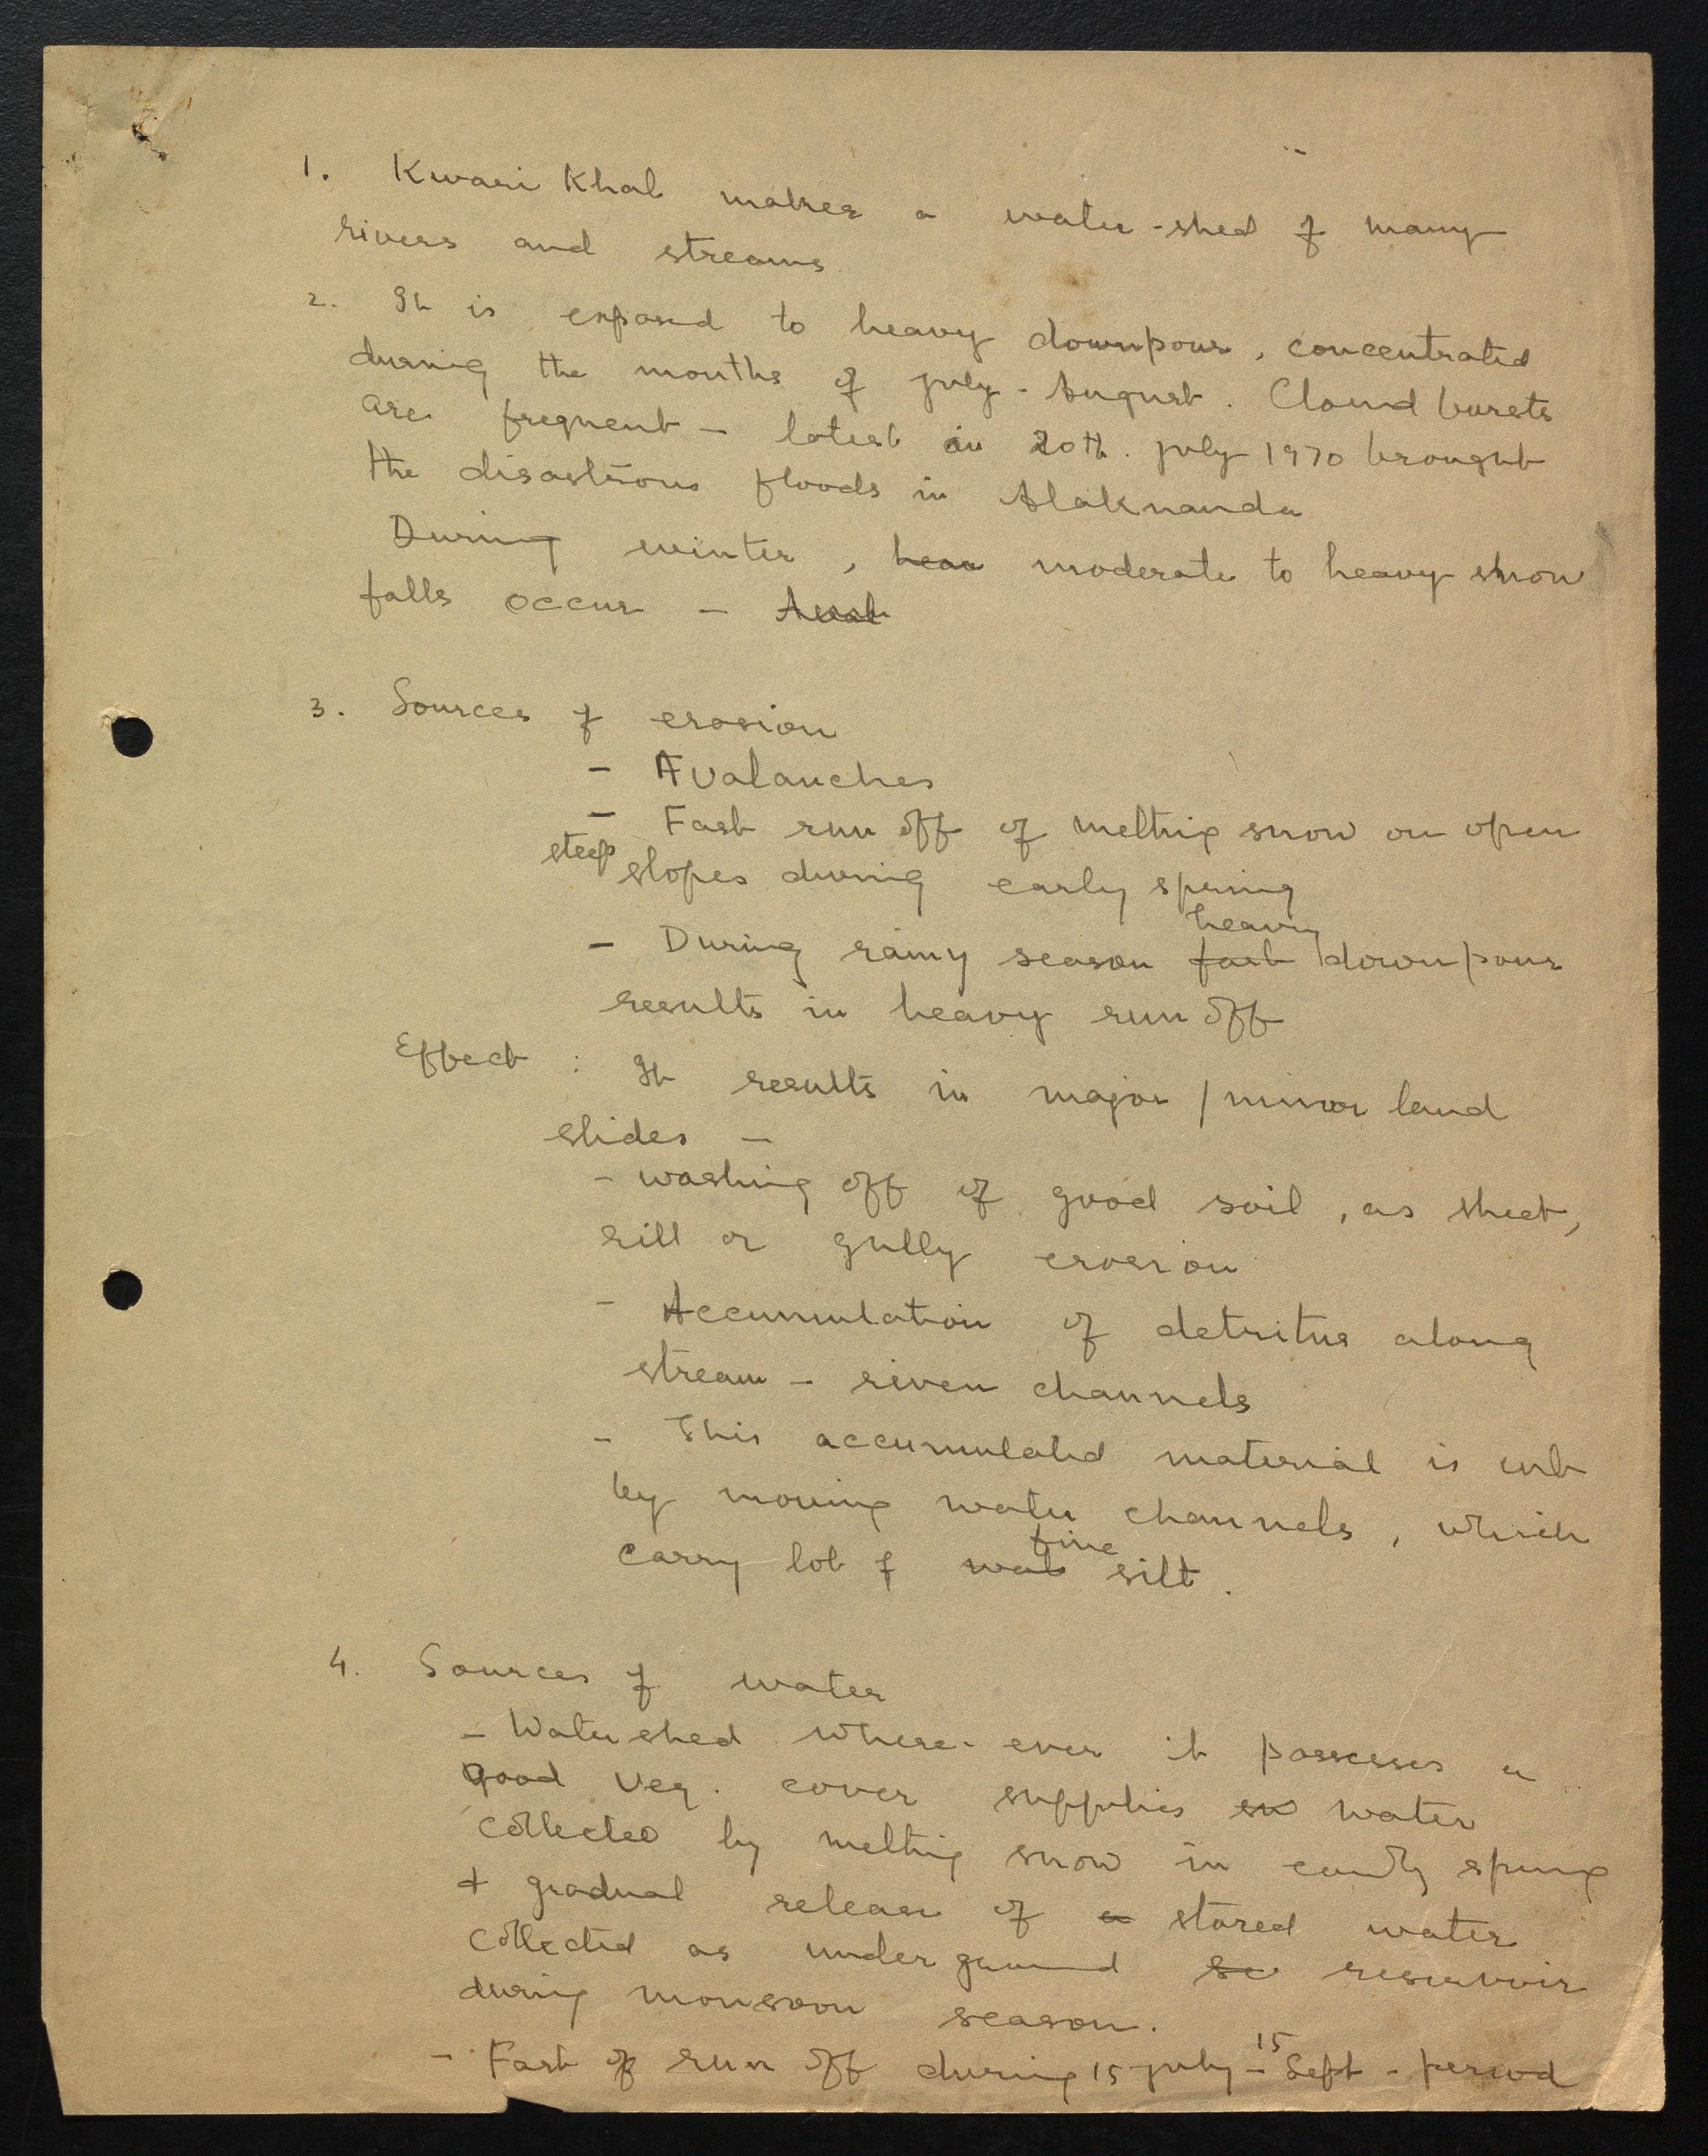 1. Kuari Khal makes a water-shed of many
rivers and streams
2. It is exposed to heavy downpour, concentrated
during the months of july - August. Cloud bursts
are frequent - latest in 20th. july 1970 brought
the disastrous floods in Alaknanda
During winter, moderate to heavy snow
falls occur -
3. Sources of erosion
- Avalanches
- Fast run off of melting snow on open
steep slopes during early spring
- During rainy season fast heavy downpour
results in heavy run off
Effect : It results in major / minor land
slides -
- washing off of good soil, as sheet,
rill or gully erosion
- Accumulation of detritus along
stream - river channels
- This accumulated material is cut
by moving water channels, which
carry lot of wat fine silt.
4. Sources of water
- Watershed where-ever it possesses a
good veg. cover supplies sn water
collected by melting snow in early spring
+ gradual release of a stored water
collected as under ground reservoir
during monsoon season.
- Fast of run off during 15 july - 15 Sept - period